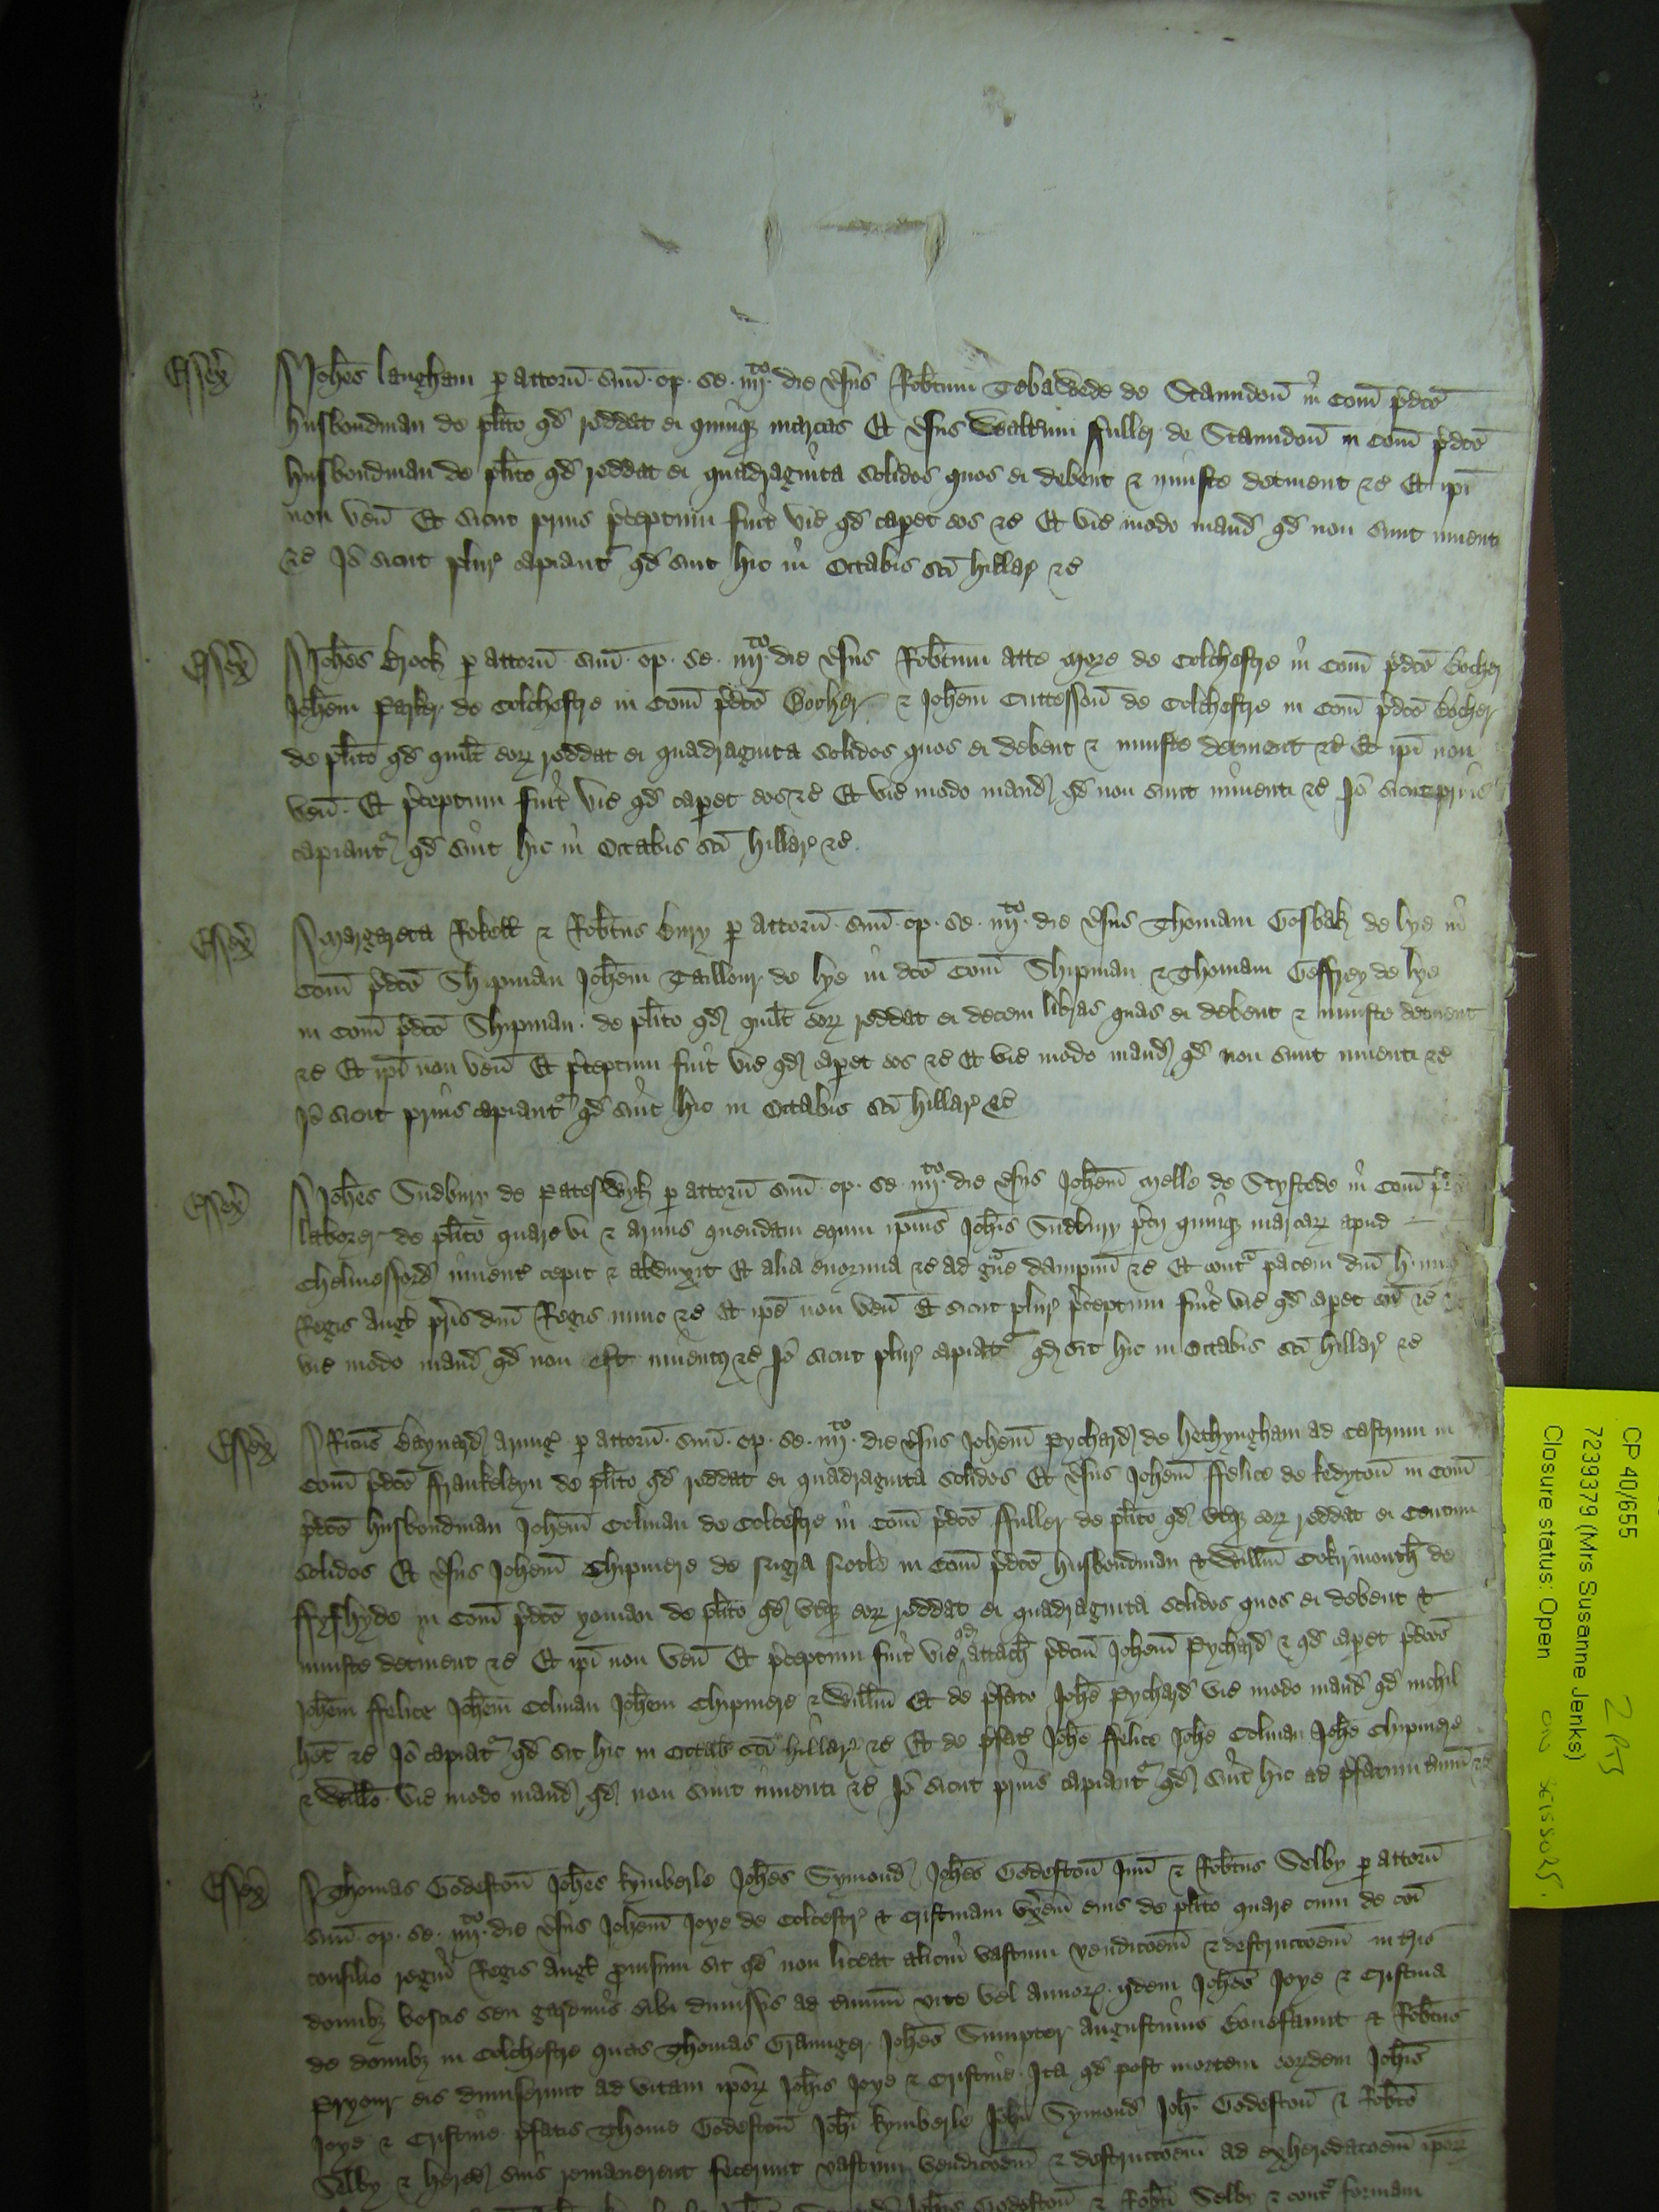 Essex Joh̄es Langham p attorn̄ · suū · op · se · iiijto · die v̄sus Rob̄tum Tebawede de Stanndon̄ in Com̄ p̄dcō
husbondman de pl̄ito qd̄ reddat ei quinqȝ marcas Et v̄sus Walt̄um Fuller de Stanndon̄ in Com̄ p̄dcō
husbondman de pl̄ito qd̄ reddat ei quadraginta solidos quos ei debent & iniuste detinent &c̄ Et ip̄i
non ven̄ Et sicut prius p̄ceptum fuit vic̄ qd̄ caperet eos &c̄ Et vic̄ modo mand̄ qd̄ non sunt inuenti
&c̄ Iō sicut plur̄ capiant̄ qd̄ sint hic in Octabis sc̄i Hillar̄ &c̄
Essex Joh̄es Brook p attorn̄ · suū · op · se · iiijto · die v̄sus Rob̄tum atte More de Colchestre in Com̄ p̄dcō Bocher
Joh̄em Parker de Colchestre in Com̄ p̄dcō Bocher & Joh̄em Cuttesson̄ de Colchestre in Com̄ p̄dcō Bocher
de pl̄ito qd̄ quil̄t eoꝝ reddat ei quadraginta solidos quos ei debent & iniuste detinent &c̄ Et ip̄i non
ven̄ · Et p̄ceptum fuit vic̄ qd̄ caperet eos &c̄ Et vic̄ modo mand̄ qd̄ non sunt inuenti &c̄ Iō sicut prius
capiant̄ qd̄ sint hic in Octabis sc̄i Hillar̄ &c̄
Essex Margareta Rokell & Rob̄tus Bury p attorn̄ · suū · op · se · iiijto · die v̄sus Thomam Gosbak de Lye in
Com̄ p̄dcō Shipman Joh̄em Taillour de Lye in dc̄o Com̄ Shipman & Thomam Geffrey de Lye
in Com̄ p̄dcō Shipman · de pl̄ito qd̄ quil̄t eoꝝ reddat ei decem libras quas ei debent & iniuste detinent
&c̄ Et ip̄i non ven̄ Et p̄ceptum fuit vic̄ qd̄ caperet eos &c̄ Et vic̄ modo mand̄ qd̄ non sunt inuenti &c̄
Iō sicut prius capiant̄ qd̄ sint hic in Octabis sc̄i Hillar̄ &c̄
Essex Joh̄es Sudbury de Pateswyk p attorn̄ suū · op · se · iiijto · die v̄sus Joh̄em Melle de Stystede in Com̄
laborer de pl̄ito quare vi & armis quendam equm ipius Joh̄is Sudbury p̄cij quinqȝ marcaꝝ apud
Chelmessford̄ inuent̄ cepit & abduxit Et alia enormia &c̄ ad gūe dampnū &c̄ Et cont̄ pacem dn̄i H ·
Regis Angl̄ p̄ris dn̄i Regis nunc &c̄ Et ip̄e non ven̄ Et sicut plur̄ p̄ceptum fuit vic̄ qd̄ caperet eū &c̄
vic̄ modo mand̄ qd̄ non est inuentꝰ &c̄ Iō sicut plur̄ capiat̄ qd̄ sit hic in Octabis sc̄i Hillar̄ &c̄
Essex Ric̄us Baynard̄ armiḡ p attorn̄ · suū · op · se · iiijto · die v̄sus Joh̄em Pychard̄ de Hethyngham ad Castrum in
Com̄ p̄dcō Frankeleyn de pl̄ito qd̄ reddat ei quadraginta solidos Et v̄sus Joh̄em Felice de Kedyton̄ in Com̄
p̄dcō husbondman Joh̄em Colman de Colcestre in Com̄ p̄dcō Fuller de pl̄ito qd̄ utqȝ eoꝝ reddat ei Centum
solidos Et v̄sus Joh̄em Chipmere de Magna in Com̄ p̄dcō husbondman & Will̄m Cokirmouth̄ de
Fyfhyde in Com̄ p̄dcō yoman de pl̄ito qd̄ utqȝ eoꝝ reddat ei quadraginta solidos quos ei debent &
iniuste detinent &c̄ Et ip̄i non ven̄ Et p̄ceptum fuit vic̄ qd̄ attach̄ p̄dcm̄ Joh̄em Pychard̄ & qd̄ caperet p̄dcōs
Joh̄em Felice Joh̄em Colman Joh̄em Chipmere & Will̄m Et de p̄fato Joh̄e Pychard̄ vic̄ modo mand̄ qd̄ nichil
het̄ &c̄ Iō capiat̄ qd̄ sit hic in Octab̄ sc̄i Hillar̄ &c̄ Et de p̄fat̄ Joh̄e Felice Joh̄e Colman Joh̄e Chipmere
& Will̄o · vic̄ modo mand̄ qd̄ non sunt inuenti &c̄ Iō sicut prius capiant̄ qd̄ sint hic ad p̄fatum t̄minū &c̄
Essex Thomas Godeston̄ Joh̄es Kymberle Joh̄es Symond̄ Joh̄es Godeston̄ Jun̄ & Rob̄tus Selby p attorn̄
suū · op · se · iiijto · die v̄sus Joh̄em Joye de Colcestr̄ & Cristinam ux̄em eius de pl̄ito quare cum de cōi
consilio regni Regis Angl̄ prouisum sit qd̄ non liceat alicui vastum vendicōem & destruccōem in t̄ris
domibȝ boscis seu gardinis sibi dimissis ad t̄minū vite vel annoꝝ · ijdem Joh̄es Joye & Cristina
de domibȝ in Colchestre quas Thomas Graunger Joh̄es Sumpter Augustinus Bonefaunt & Rob̄tus
Pryour eis dimiserunt ad vitam ip̄oꝝ Joh̄is Joye & Cristine · Ita qd̄ post mortem eorꝝdem Joh̄is
Joye & Cristine p̄fatis Thome Godeston̄ Joh̄i Kymberle Joh̄i Symond̄ Joh̄i Godeston̄ & Rob̄to
Selby & hered̄ suis remanerent fecerunt vastum vendicōem & destruccōem ad exheredacōem ip̄oꝝ
Joh̄is Godeston̄ & Rob̄ti Selby & cont̄ formam
CP 40/655
7239379 (Mrs Susanne Jenks)
Closure status: Open